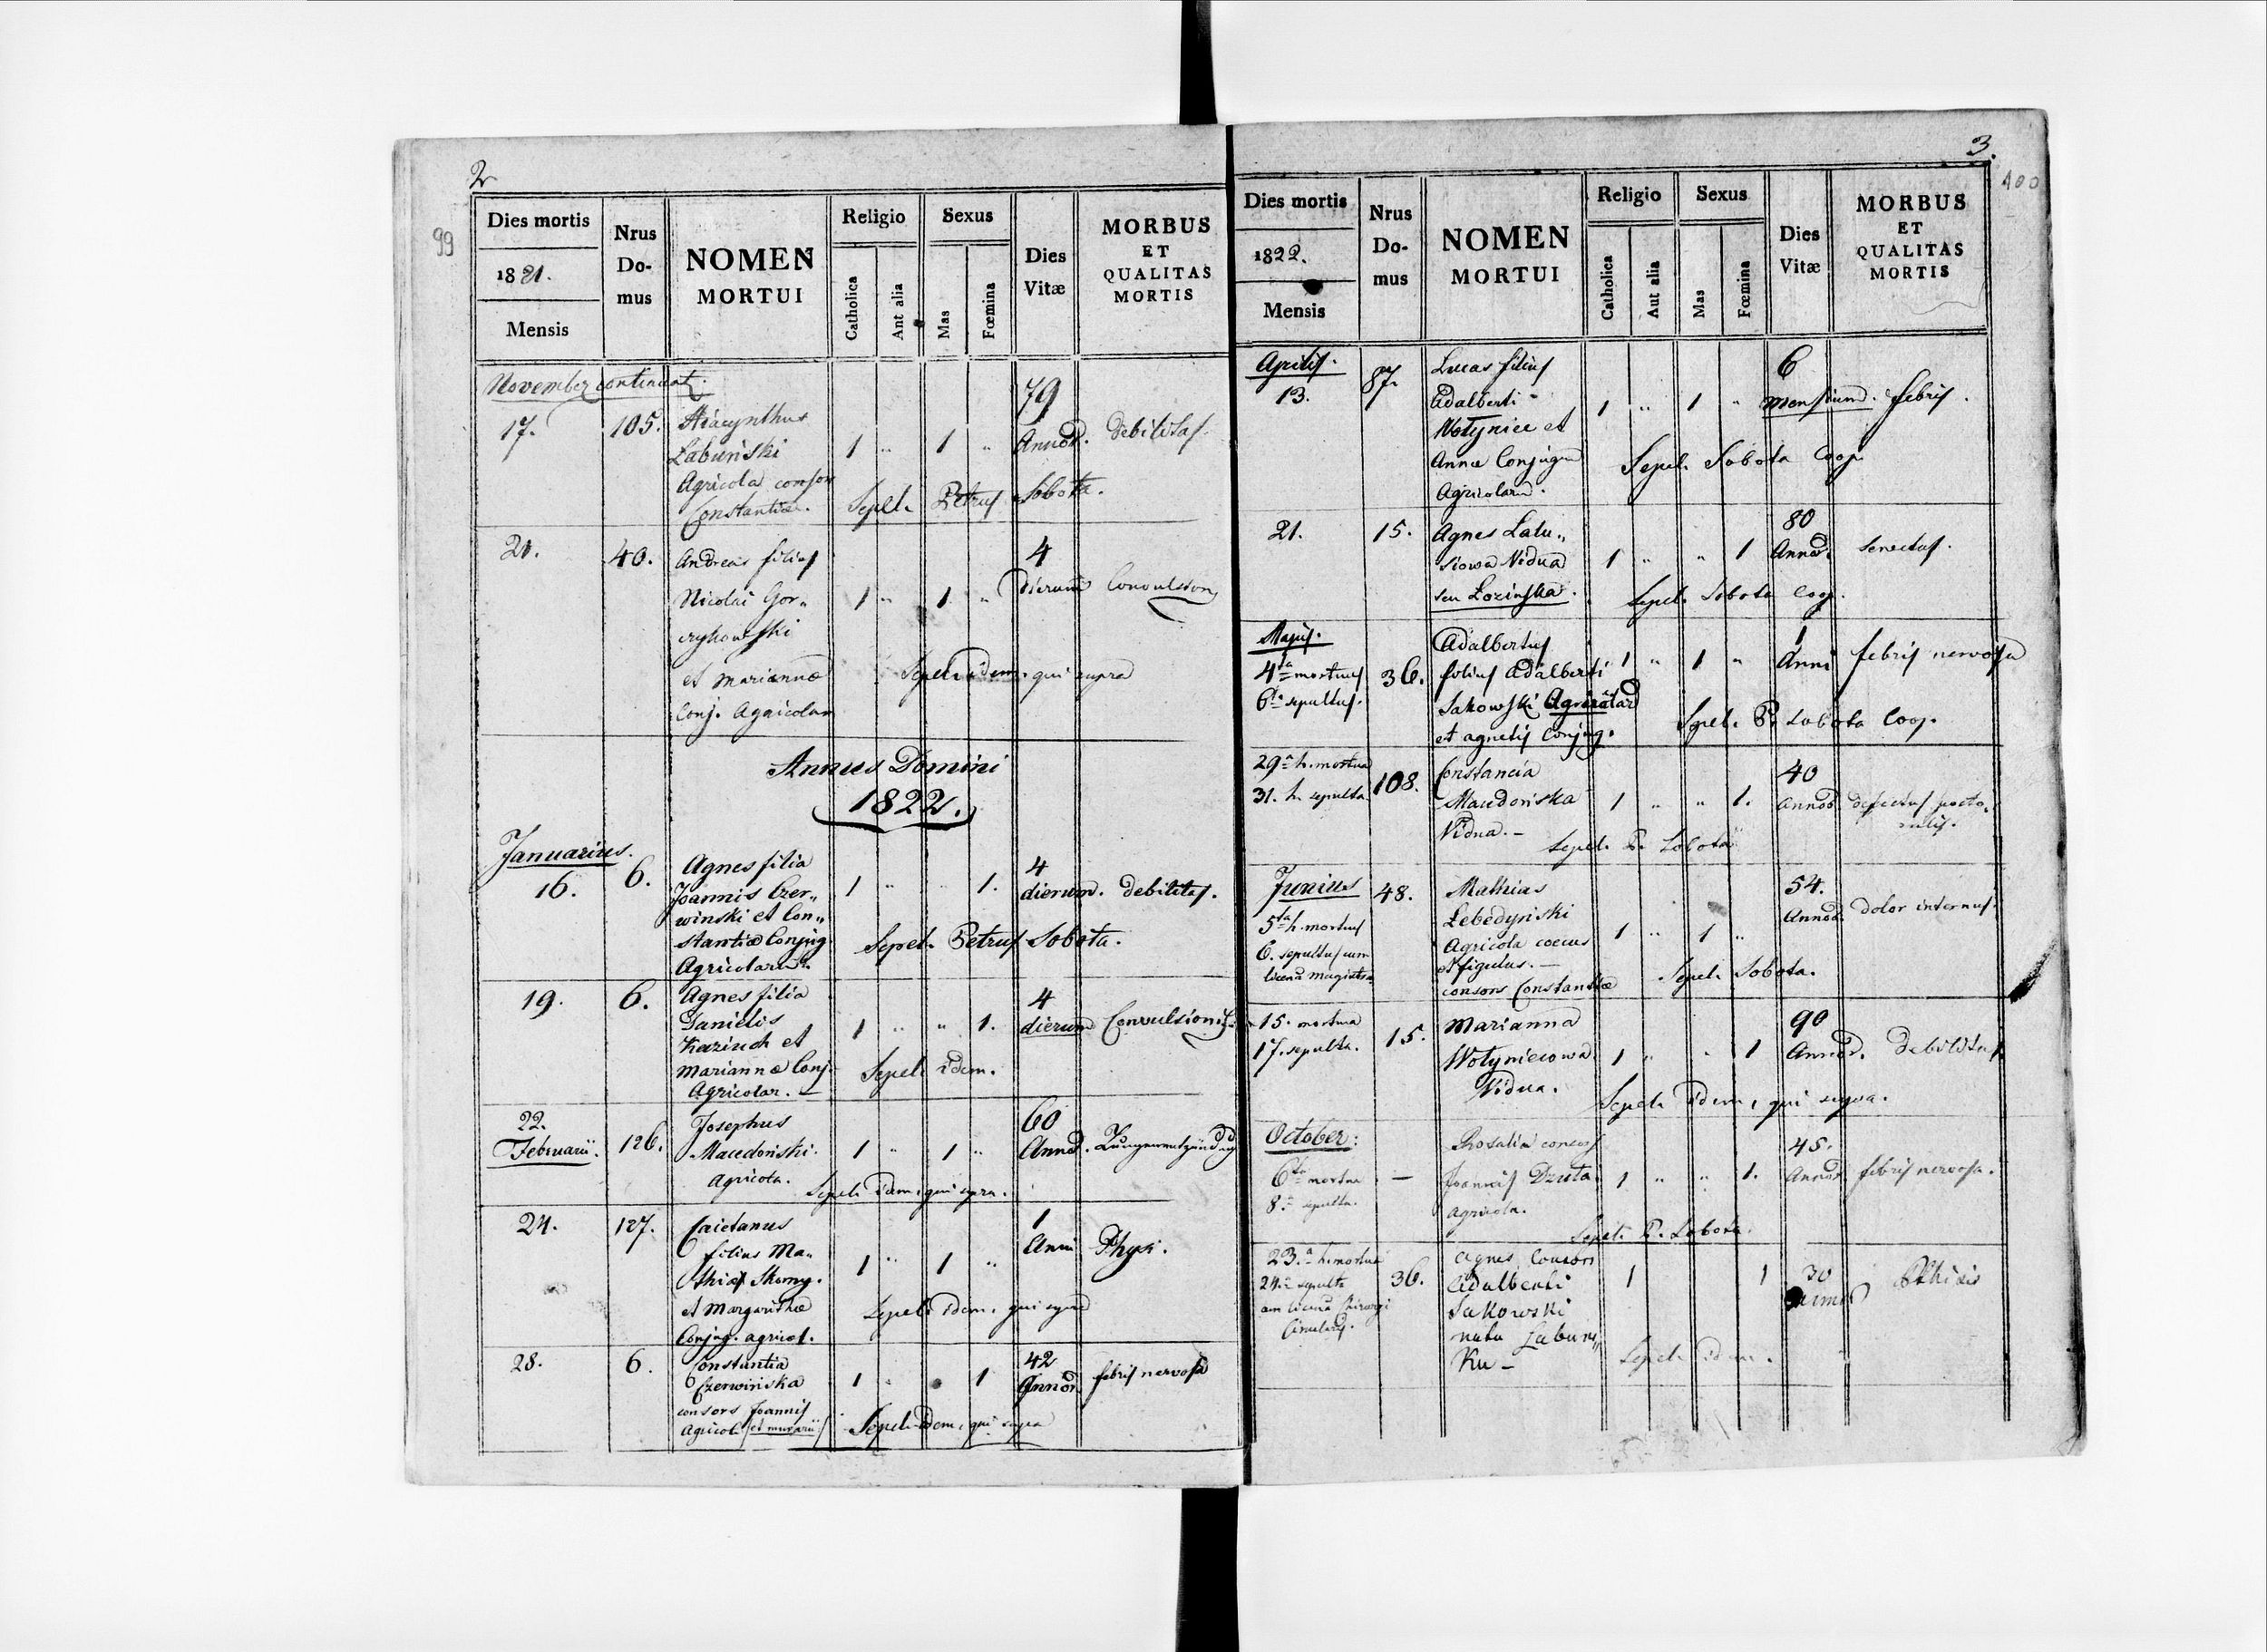 2
99
Dies mortis
1821.
Mensis
Nrus Domus
NOMEN MORTUI
Religio
Catholica
Aut alia
Sexus
Mas
Fœmina
Dies Vitæ
MORBUS ET QUALITAS MORTIS
November continuat.
17. 105. Hiacynthus 79
Łabuński 1 " 1 " Annor. Debilitas.
Agricola consor
Constantiæ. Sepel. Petrus Sobota.
21. 40. Andreas filius 4
Nicolai Gor„ 1 " 1 " dierum Convulsion
et Mariannæ Sepel. idem, qui supra
Conj. Agricolar
Annus Domini
1822.
Januarius.
16. 6. Agnes filia 4
Joannis Czer„ 1 " " 1. dierum. Debilitas.
winski et Con„
stantiæ Conjug. Sepel. Petrus Sobota.
Agricolarum.
19. 6. Agnes filia 4
Danielis 1 " " 1. dierum Convulsionis
Kazinch et
Mariannæ Conj. Sepel. idem.
Agricolar.
22. Februarii. 126. Josephus 60
Macedoński. 1 " 1 " Annor. Lungenentzündung
Agricola. Sepel. idem, qui supra.
24. 127. Caietanus 1
filius Ma„ 1 " 1 " Anni Physi.
thiæ Skorny.
et Margarithæ Sepel. idem, qui supra
Conjug. agricol.
28. 6. Constantia 42
Czerwińska 1 " 1 Annor febris nervosa
consors Joannis
Agricol. et murarii Sepel. idem, qui supra
3.
100
Dies mortis
1822.
Mensis
Nrus Domus
NOMEN MORTUI
Religio
Catholica
Aut alia
Sexus
Mas
Fœmina
Dies Vitæ
MORBUS ET QUALITAS MORTIS
Aprilis.
13. 87. Lucas filius 6
Adalberti 1 " 1 " mensium. febris.
Wołynice et
Annæ Conjugum Sepel. Sobota Coop.
Agricolarum.
21. 15. Agnes Latu„ 80
siowa Vidua 1 " " 1 Annor. senectus.
seu Łozinska. Sepel. Sobota Coop.
Majus.
4ta mortuus 36. Adalbertus 1
6ta sepultus. filius Adalberti 1 " 1 " Anni febris nervosa
Sakowski Agricolar
et agnetis Conjug. Sepel. P. Sobota Coop.
29a h. mortua 108. Constancia 40
31. h. sepulta Macedońska 1 " " 1. Annor defectus pectoralis.
Vidua. Sepel. P. Sobota
Junius 48. Mathias 54.
5ta h. mortuus Łebedyński 1 " 1 " Annor. dolor internus.
6. sepultus cum Agricola coecus
licena magistra et figulus. Sepel. Sobota.
consors Constantiæ
15. mortua 15. Marianna 90
17. sepulta. Wołyniecowa 1 " " 1 Annor. Debilitas
Vidua. Sepel. idem, qui supra.
October:
6ta mortua — Rosalia consors 45.
8. sepulta. Joannis Dziuta 1 " " 1. Annor febris nervosa.
Agricola. Sepel. P. Sobota.
23.a h. mortua 36. Agnes, Consors 30
24.a sepulta Adalberti 1 1 Phisis
Sakowski
nata Łabuns„
Ka — Sepel. idem.